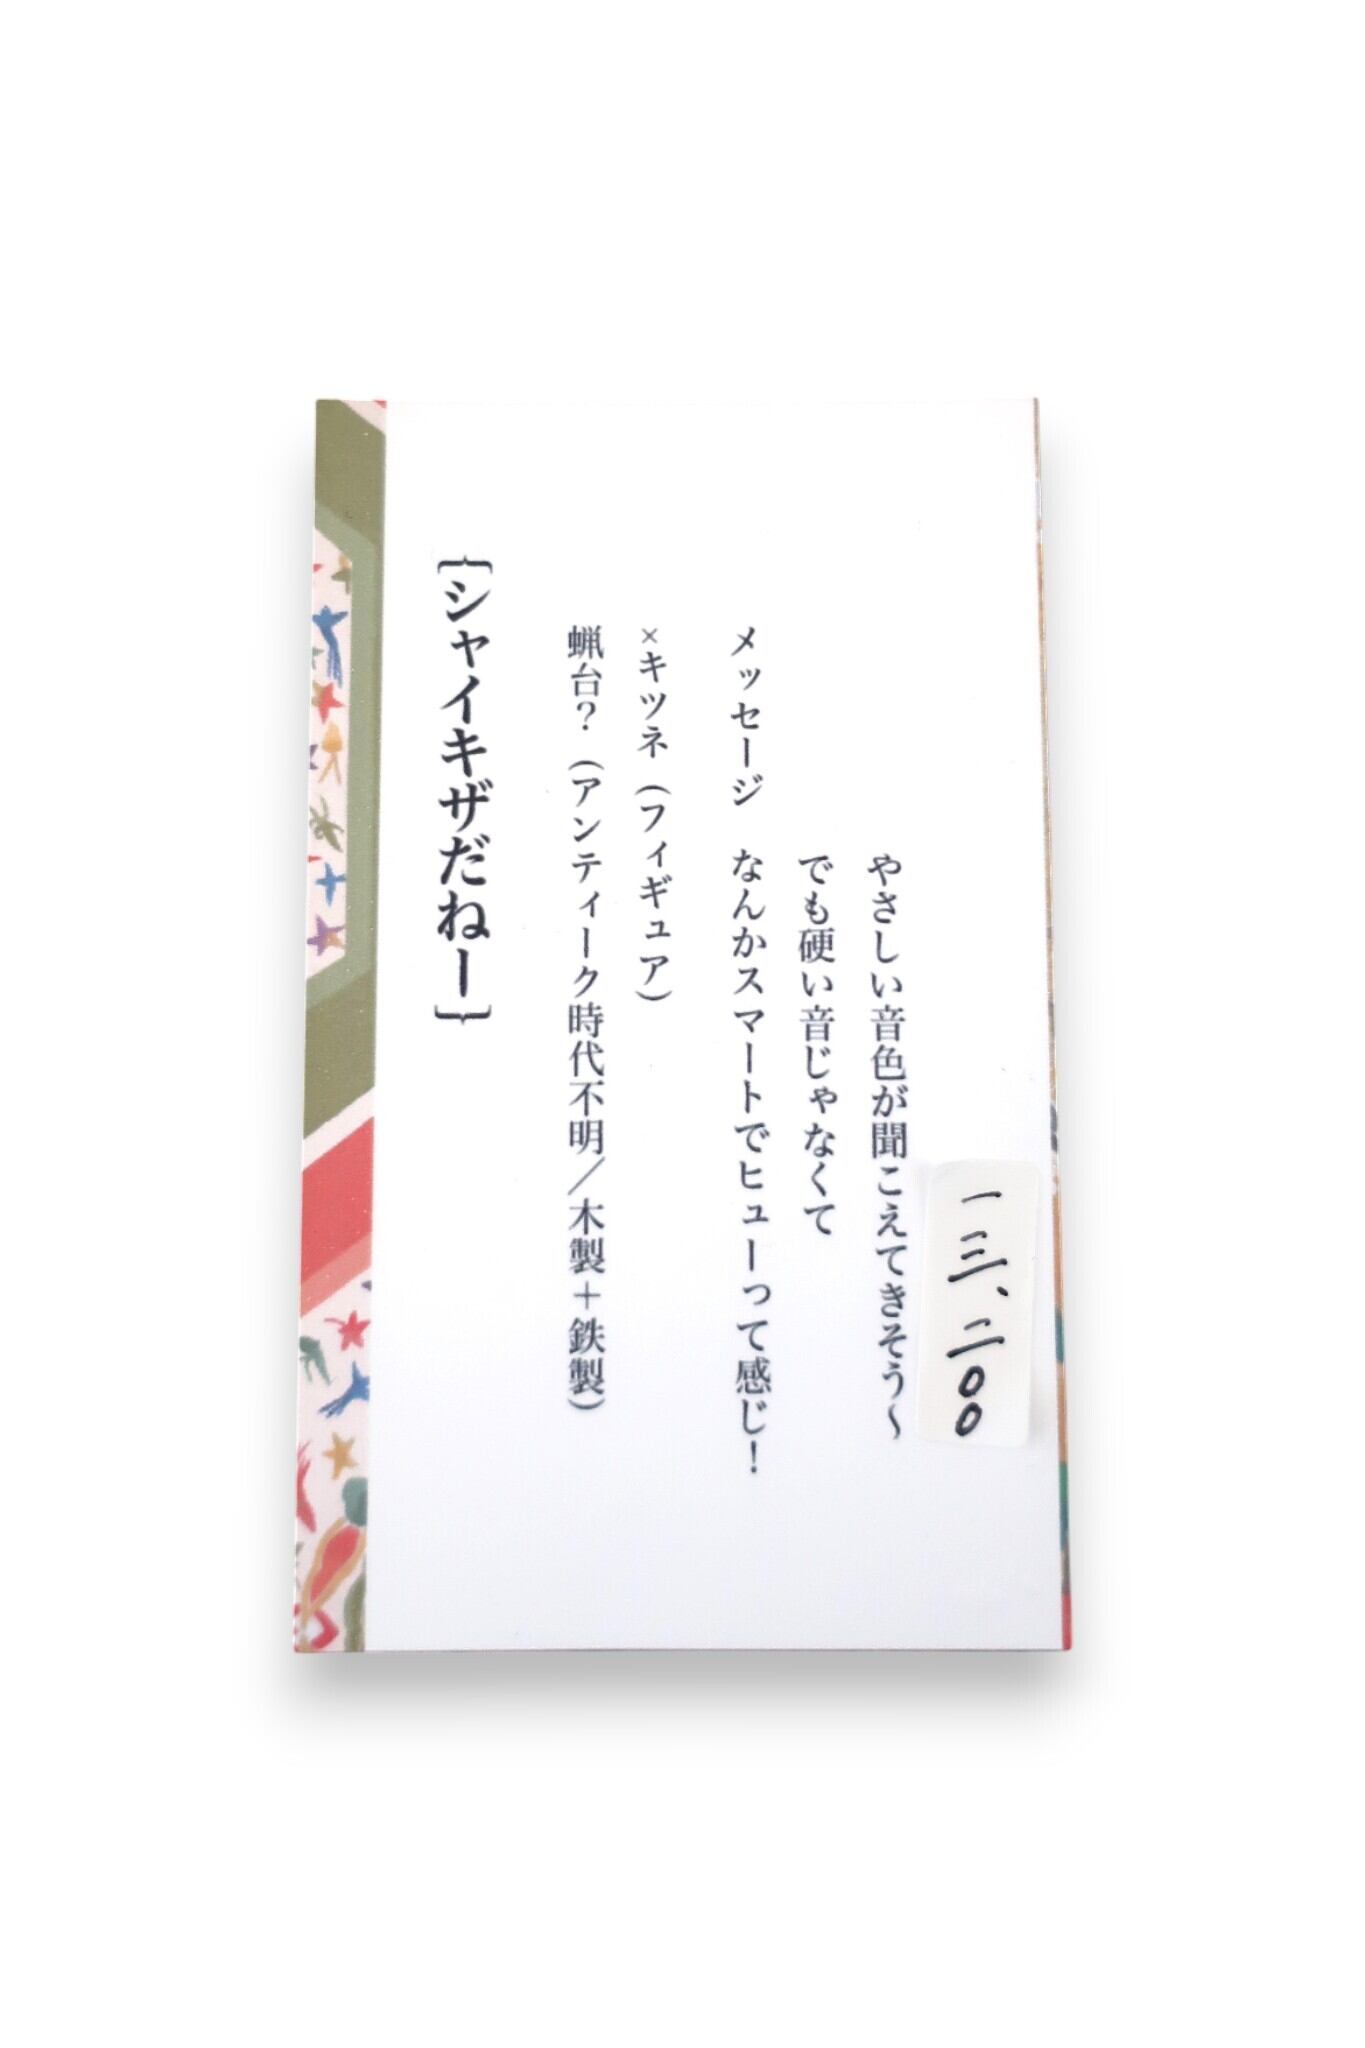 {シャイキザだねー}
蝋台?(アンティーク時代不明/木製+鉄製)
×キツネ(フィギュア)
メッセージ なんかスマートでヒューって感じ!
でも硬い音じゃなくて
やさしい音色が聞こえてきそう〜
一三、二〇〇